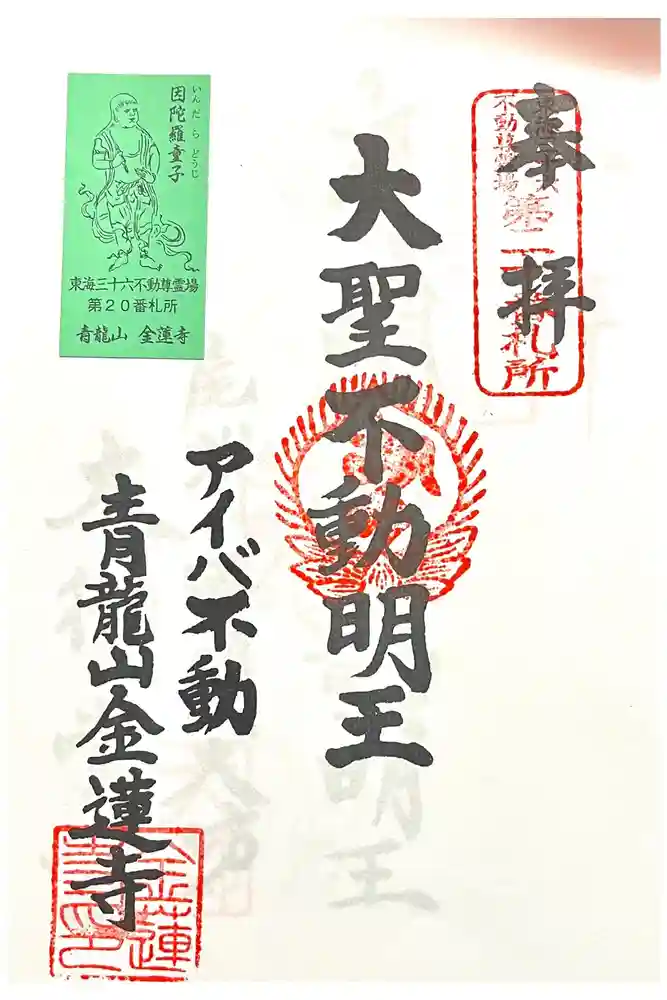 奉拝
東海三十六
不動尊霊場
第二十番札所
大聖不動明王
アイバ不動
青龍山金蓮寺
金蓮
寺印
因陀羅童子
いんだらどうじ
東海三十六不動尊霊場
第20番札所
青龍山 金蓮寺